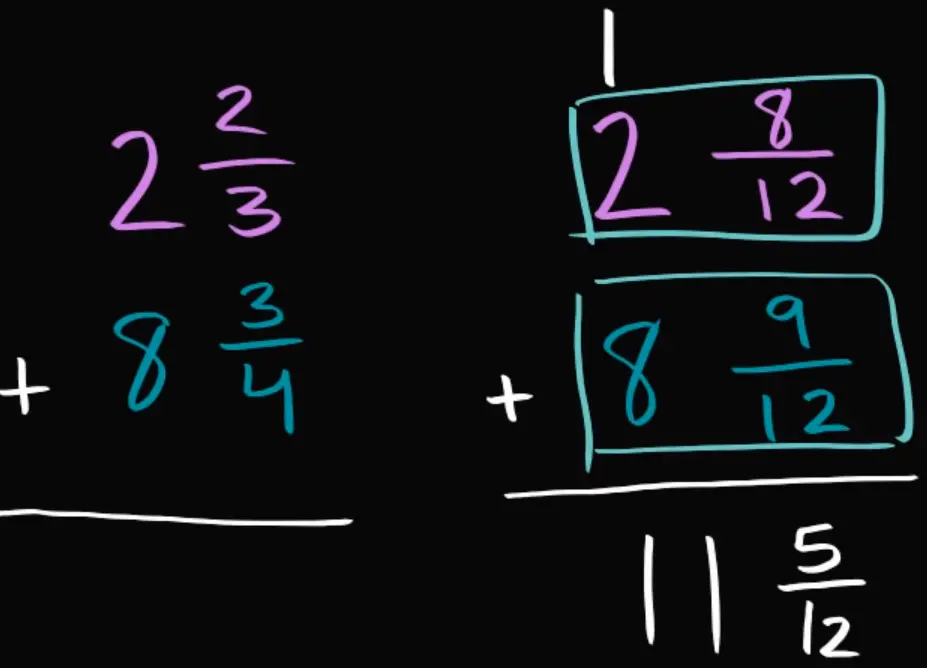 2 2/3
+ 8 3/4
1
2 8/12
+ 8 9/12
11 5/12